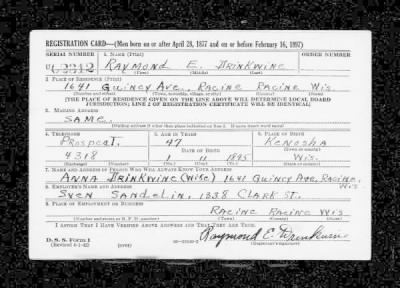 REGISTRATION CARD—(Men born on or after April 28, 1877 and on or before February 16, 1897)
SERIAL NUMBER 1. NAME (Print) ORDER NUMBER
U 2212 RAYMOND E. DRINKWINE
(First) (Middle) (Last)
2. PLACE OF RESIDENCE (Print)
1641 QUINCY AVE. RACINE RACINE WIS.
(Number and street) (Town, township, village, or city) (County) (State)
[THE PLACE OF RESIDENCE GIVEN ON THE LINE ABOVE WILL DETERMINE LOCAL BOARD
JURISDICTION; LINE 2 OF REGISTRATION CERTIFICATE WILL BE IDENTICAL]
3. MAILING ADDRESS
SAME.
[Mailing address if other than place indicated on line 2. If same insert word same]
4. TELEPHONE 5. AGE IN YEARS 6. PLACE OF BIRTH
PROSPECT. 47 KENOSHA
DATE OF BIRTH (Town or county)
4318 11 1895 WIS.
(Exchange) (Number) (Mo.) (Day) (Yr.) (State or country)
7. NAME AND ADDRESS OF PERSON WHO WILL ALWAYS KNOW YOUR ADDRESS
ANNA DRINKWINE (WIFE) 1641 QUINCY AVE, RACINE,
8. EMPLOYER'S NAME AND ADDRESS WIS
SVEN SANDELIN, 1338 CLARK ST.
9. PLACE OF EMPLOYMENT OR BUSINESS
RACINE RACINE WIS
(Number and street or R. F. D. number) (Town) (County) (State)
I AFFIRM THAT I HAVE VERIFIED ABOVE ANSWERS AND THAT THEY ARE TRUE.
D. S. S. Form 1 Raymond E. Drinkwine
(Revised 4-1-42) (over) (Registrant's signature)